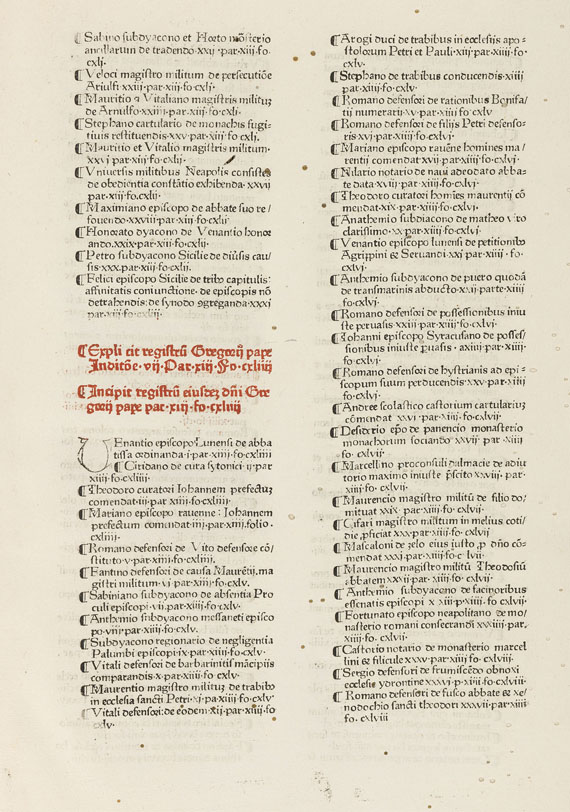 ¶ Sabino subdyacono et Horto mōsterio
ancillarum de tradendo·xxij·par·xiij·fo·
cxlj·
¶ Veloci magistro militum de persecutiōe
Ariulfi·xxiij·par·xiij·fo·cxlj·
¶ Mauritio & Vitaliano magistris milituȝ
de Arnulfo·xxiiij·par·xiij·fo·cxlj·
¶ Stephano cartulario de monachis fugi-
tiuis restituendis·xxv·par·xiij·fo·cxlj·
¶ Mauritio et Vitalio magistris militum·
xxvj par·xiij·fo·cxlij·
¶ Vniuersis militibus Neapolis consistēs
de obedientia constātio exhibenda·xxvij
par·xiij·fo·cxlij·
¶ Maximiano episcopo de abbate suo re/
fouendo·xxviij·par·xiij·fo·cxlij·
¶ Honorato dyacono de Venantio honor
ando·xxix·par·xiij·fo·cxlij·
¶ Petro subdyacono Sicilie de diūsis cau/
sis·xxx·par·xiij·fo·cxlij·
¶ Felici episcopo Sicilie de tribꝰ capitulis:
affinitatis coniunctione·de episcopis nō
detrahendis:de synodo ɔgreganda·xxxj
par·xiij·fo·cxliij·
¶ Expli cit registrū Gregorij pape
Inditōe·vij·Par·xiij·Fo·cxliiij
¶ Incipit registrū eiusdeȝ dn̄i Gre
gorij pape par·xiij·fo·cxliiij
VEnantio episcopo Lunensi de abba
tissa ordinanda·j·par·xiiij·fo·cxliiij
¶ Ciridano de cura sytonici·ij·par
xiiij·fo·cxliiij·
¶ Theodoro curatori Iohannem prefectuȝ
comendat·iij·par·xiiij·fo·cxliiij·
¶ Mariano episcopo rauenne:Iohannem
prefectum comendat·iiij·par·xiiij·folio·
cxliiij·
¶ Romano defensori de Vito defensore cō/
stituto·v·par·xiiij·fo·cxliiij·
¶ Fantino defensori de causa Maurētij,ma
gistri militum·vj·par·xiiij·fo·cxlv·
¶ Sabiniano subdyacono de absentia Pro
culi episcopi·vij·par·xiiij·fo·cxlv·
¶ Anthemio subdyacono messaneti episco
po·viij·par·xiiij·fo·cxlv·
¶ Subdyacono regionario de negligentia
Palumbi episcopi·ix·par·xiiij·fo·cxlv·
¶ Vitali defensori de barbarinitis mācipiis
comparandis·x·par·xiiij·fo·cxlv·
¶ Maurentio magistro milituȝ de trabibꝰ
in ecclesia sancti Petri·xj·pa·xiiij·fo·cxlv·
¶ Vitali defensori:de eodem·xij·par·xiiij·fo
cxlv·
¶ Arogi duci de trabibus in ecclesiis apo-
stolorum Petri et Pauli·xiij·par·xiiij·fo·
cxlv·
¶ Stephano de trabibus conducendis·xiiij
par·xiiij·fo·cxlv·
¶ Romano defensori de rationibus Bonifa/
tij numerarij·xv·par·xiiij·fo·cxlv·
¶ Romano defensori de filijs Petri defenso-
ris·xvj·par·xiiij·fo·cxlvj·
¶ Mariano episcopo rauēne homines ma/
rentij comendat·xvij·par·xiiij·fo·cxlvj·
¶ Hilario notario de naui adeodato abba-
te data·xviij·par·xiiij·fo·cxlvj·
¶ Theodoro curatori homīes maurentij cō
mendat·xix·par·xiiij·fo·cxlvj·
¶ Anathemio subdiacono de matheo viro
clarissimo·xx·par·xiiij·fo·cxlvj·
¶ Venantio episcopo lunensi de petitionibꝰ
Agrippini & Seruandi·xxj·par·xiiij·fo·
cxlvj·
¶ Anthemio subdyacono de puero quodā
de transmarinis abducto·xxij·parte·xiiij
fo·cxlvj·
¶ Romano defensori de possessionibus iniu
ste peruasis·xxiij·par·xiiij·fo·cxlvj·
¶ Iohanni episcopo Syracusano de posses/
sionibus iniuste puasis·xxiiij·par·xiiij·fo
cxlvj·
¶ Romano defensori de hystrianis ad epi/
scopum suum perducendis·xxv·par·xiiij·
fo·cxlvj·
¶ Andree scolastico castorium cartulariuȝ
cōmendat·xxvi·par·xiiij·fo·cxlvij·
¶ Desiderio ep̄o de panencio monasterio
monachorum sociando·xxvij·par·xiiij·
fo·cxlvij·
¶ Marcellino proconsuli dalmacie de adiu
torio maximo iniuste p̄scito·xxviij·par·
xiiij·fo·cxlvij·
¶ Maurencio magistro militū de filio do/
mituat·xxix·par·xiiij·fo·cxlvij·
¶ Gifari magistro militum in melius coti/
die ꝓficiat·xxx·par·xiiij·fo·cxlvij·
¶ Mascaloni de zelo eius iusto ꝓ dn̄o cō-
mendat·xxxj·par·xiiij·fo·cxlvij·
¶ Maurencio magistro militū Theodosiū
abbatem·xxxij·par·xiiij·fo·cxlvij·
¶ Anthemio subdyacono de facinoribus
essenatis episcopi·xxxiij·p·xiiij·fo·cxlvij·
¶ Fortunato episcopo neapolitano de mo/
nasterio romani consecrandi·xxxiiij·par·
xiiij·fo·cxlvij·
¶ Castorio notario de monasterio marcel
lini & filicule·xxxv·par·xiiij·fo·cxlviij·
¶ Sergio defensori de frumiscēdo obnoxi
ecclesie ydrontine·xxxvj·p·xiiij·fo·cxlviij
¶ Romano defensori de fusco abbate & xe/
nodochio sancti theodori·xxxvij·par·xiiij
fo·cxlviij